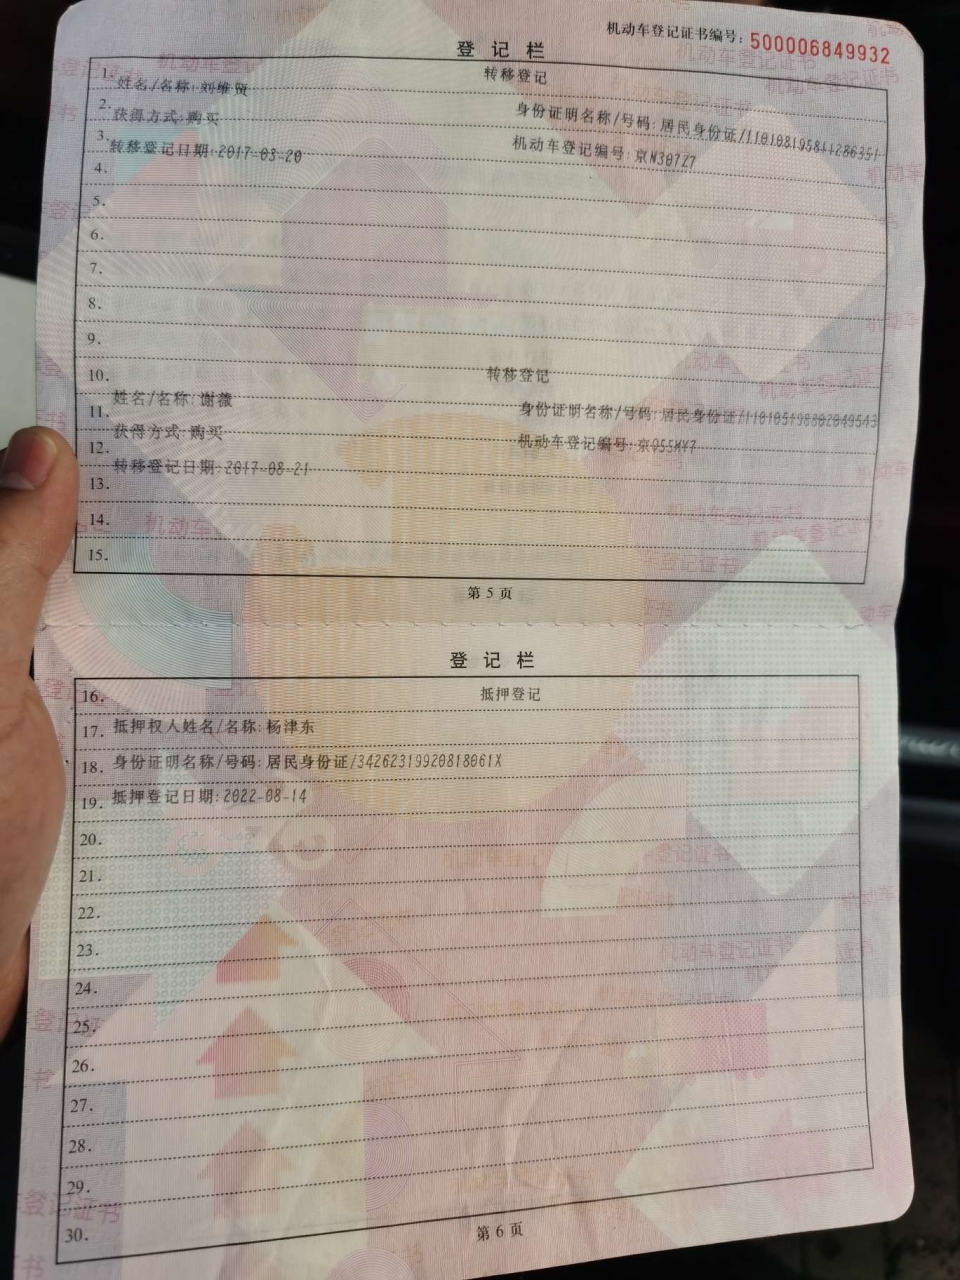 机动车登记证书编号：500006849932
登记栏
1. 转移登记
姓名/名称:刘维贤
2. 身份证明名称/号码:居民身份证/
获得方式:购买
3. 机动车登记编号:京N307Z7
转移登记日期:2017-03-20
4.
5.
6.
7.
8.
9.
10. 转移登记
姓名/名称:谢薇
11. 身份证明名称/号码:居民身份证/
获得方式:购买
12. 机动车登记编号:京Q55MY7
转移登记日期:2017-08-21
13.
14.
15.
第5页
登记栏
16. 抵押登记
17. 抵押权人姓名/名称:杨津东
18. 身份证明名称/号码:居民身份证/34262319920818061X
19. 抵押登记日期:2022-08-14
20.
21.
22.
23.
24.
25.
26.
27.
28.
29.
30.
第6页